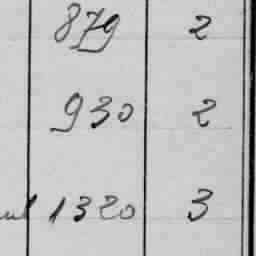 879 2
930 2
1320 3